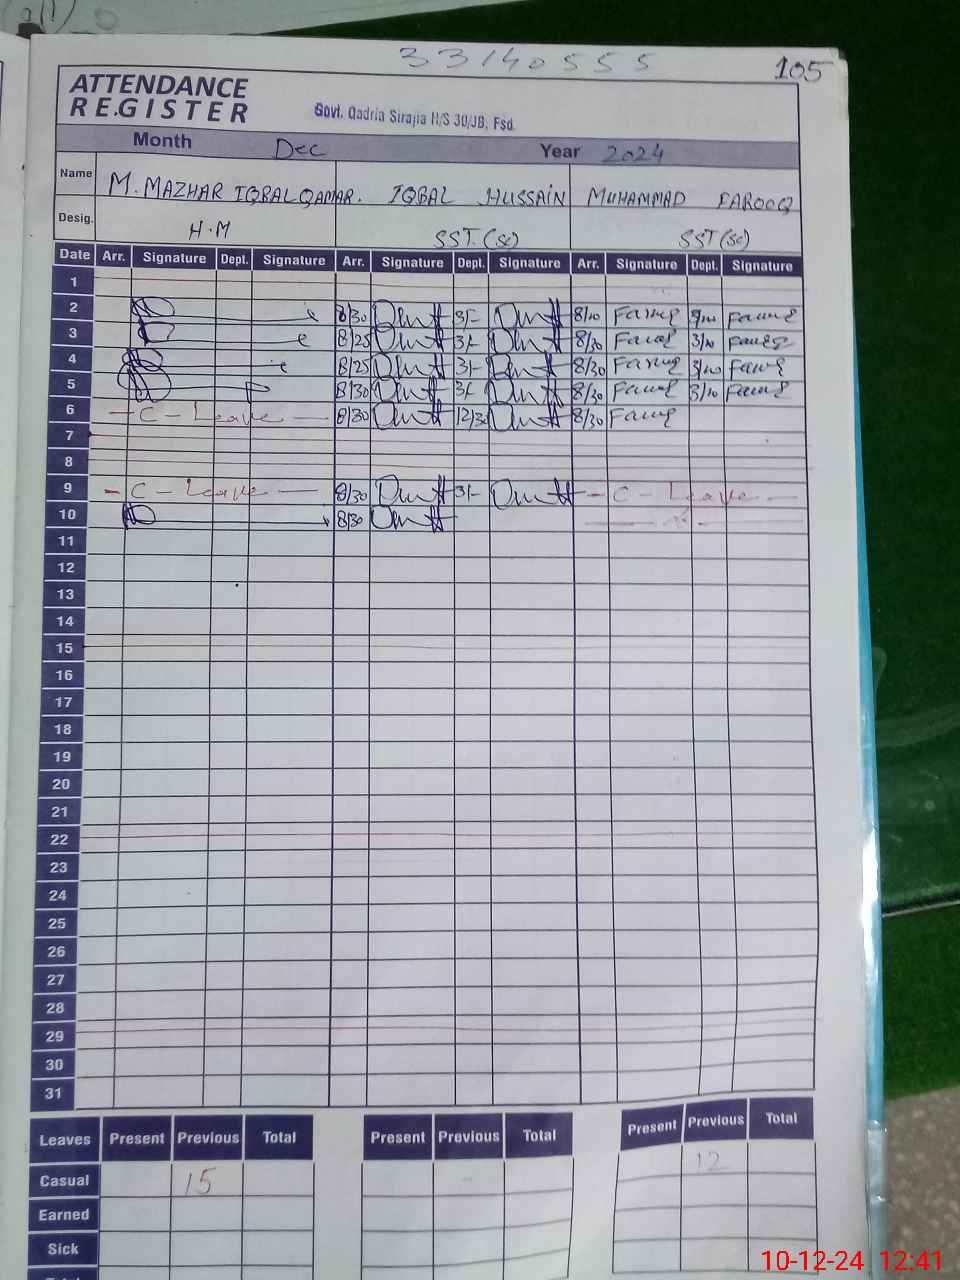 33140555
105
ATTENDANCE
REGISTER
Govt. Qadria Sirajia H/S 30/JB, Fsd.
Month Dec Year 2024
Name M. MAZHAR IQBAL QAMAR. IQBAL HUSSAIN MUHAMMAD FAROOQ
Desig. H.M SST.(Sc) SST(Sc)
Date Arr. Signature Dept. Signature Arr. Signature Dept. Signature Arr. Signature Dept. Signature
1
2 8/30 3/-
3 8/25 3/- 8/30 3/10
4 8/25 3/- 8/30 3/10
5 8/30 3/- 8/30 3/10
6 - C - Leave - 8/30 12/30 8/30
7
8
9 - C - Leave - 8/30 3/- - C - Leave -
10 8/30
11
12
13
14
15
16
17
18
19
20
21
22
23
24
25
26
27
28
29
30
31
Leaves Present Previous Total Present Previous Total Present Previous Total
Casual 15 12
Earned
Sick
10-12-24 12:41